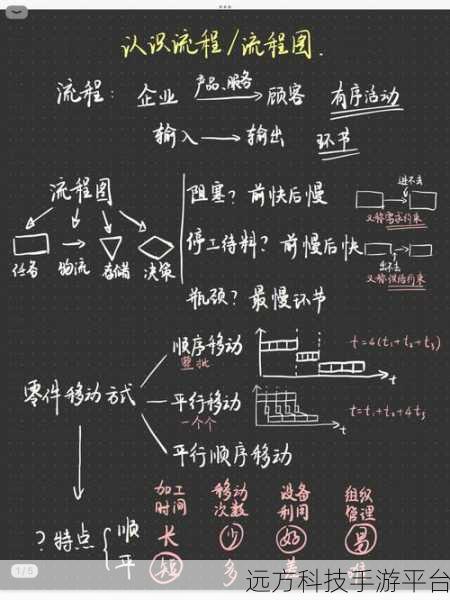 认识流程/流程图.
流程: 企业 产品、服务 → 顾客 有序活动
输入 → 输出 环节
流程图
任务 物流 存储 决策
阻塞? 前快后慢
进不去
又称需求约束
停工待料? 前慢后快
出不去
又称供给约束
瓶颈? 最慢环节
零件移动方式
顺序移动
整批
t
t=4(t₁+t₂+t₃)
平行移动
一个个
t
t=t₁+t₂+4t₃
平行顺序移动
加工时间 移动次数 设备利用 组织管理
?特点
顺 长 少 好 易
平 短 多 差
1/5
远方科技手游平台